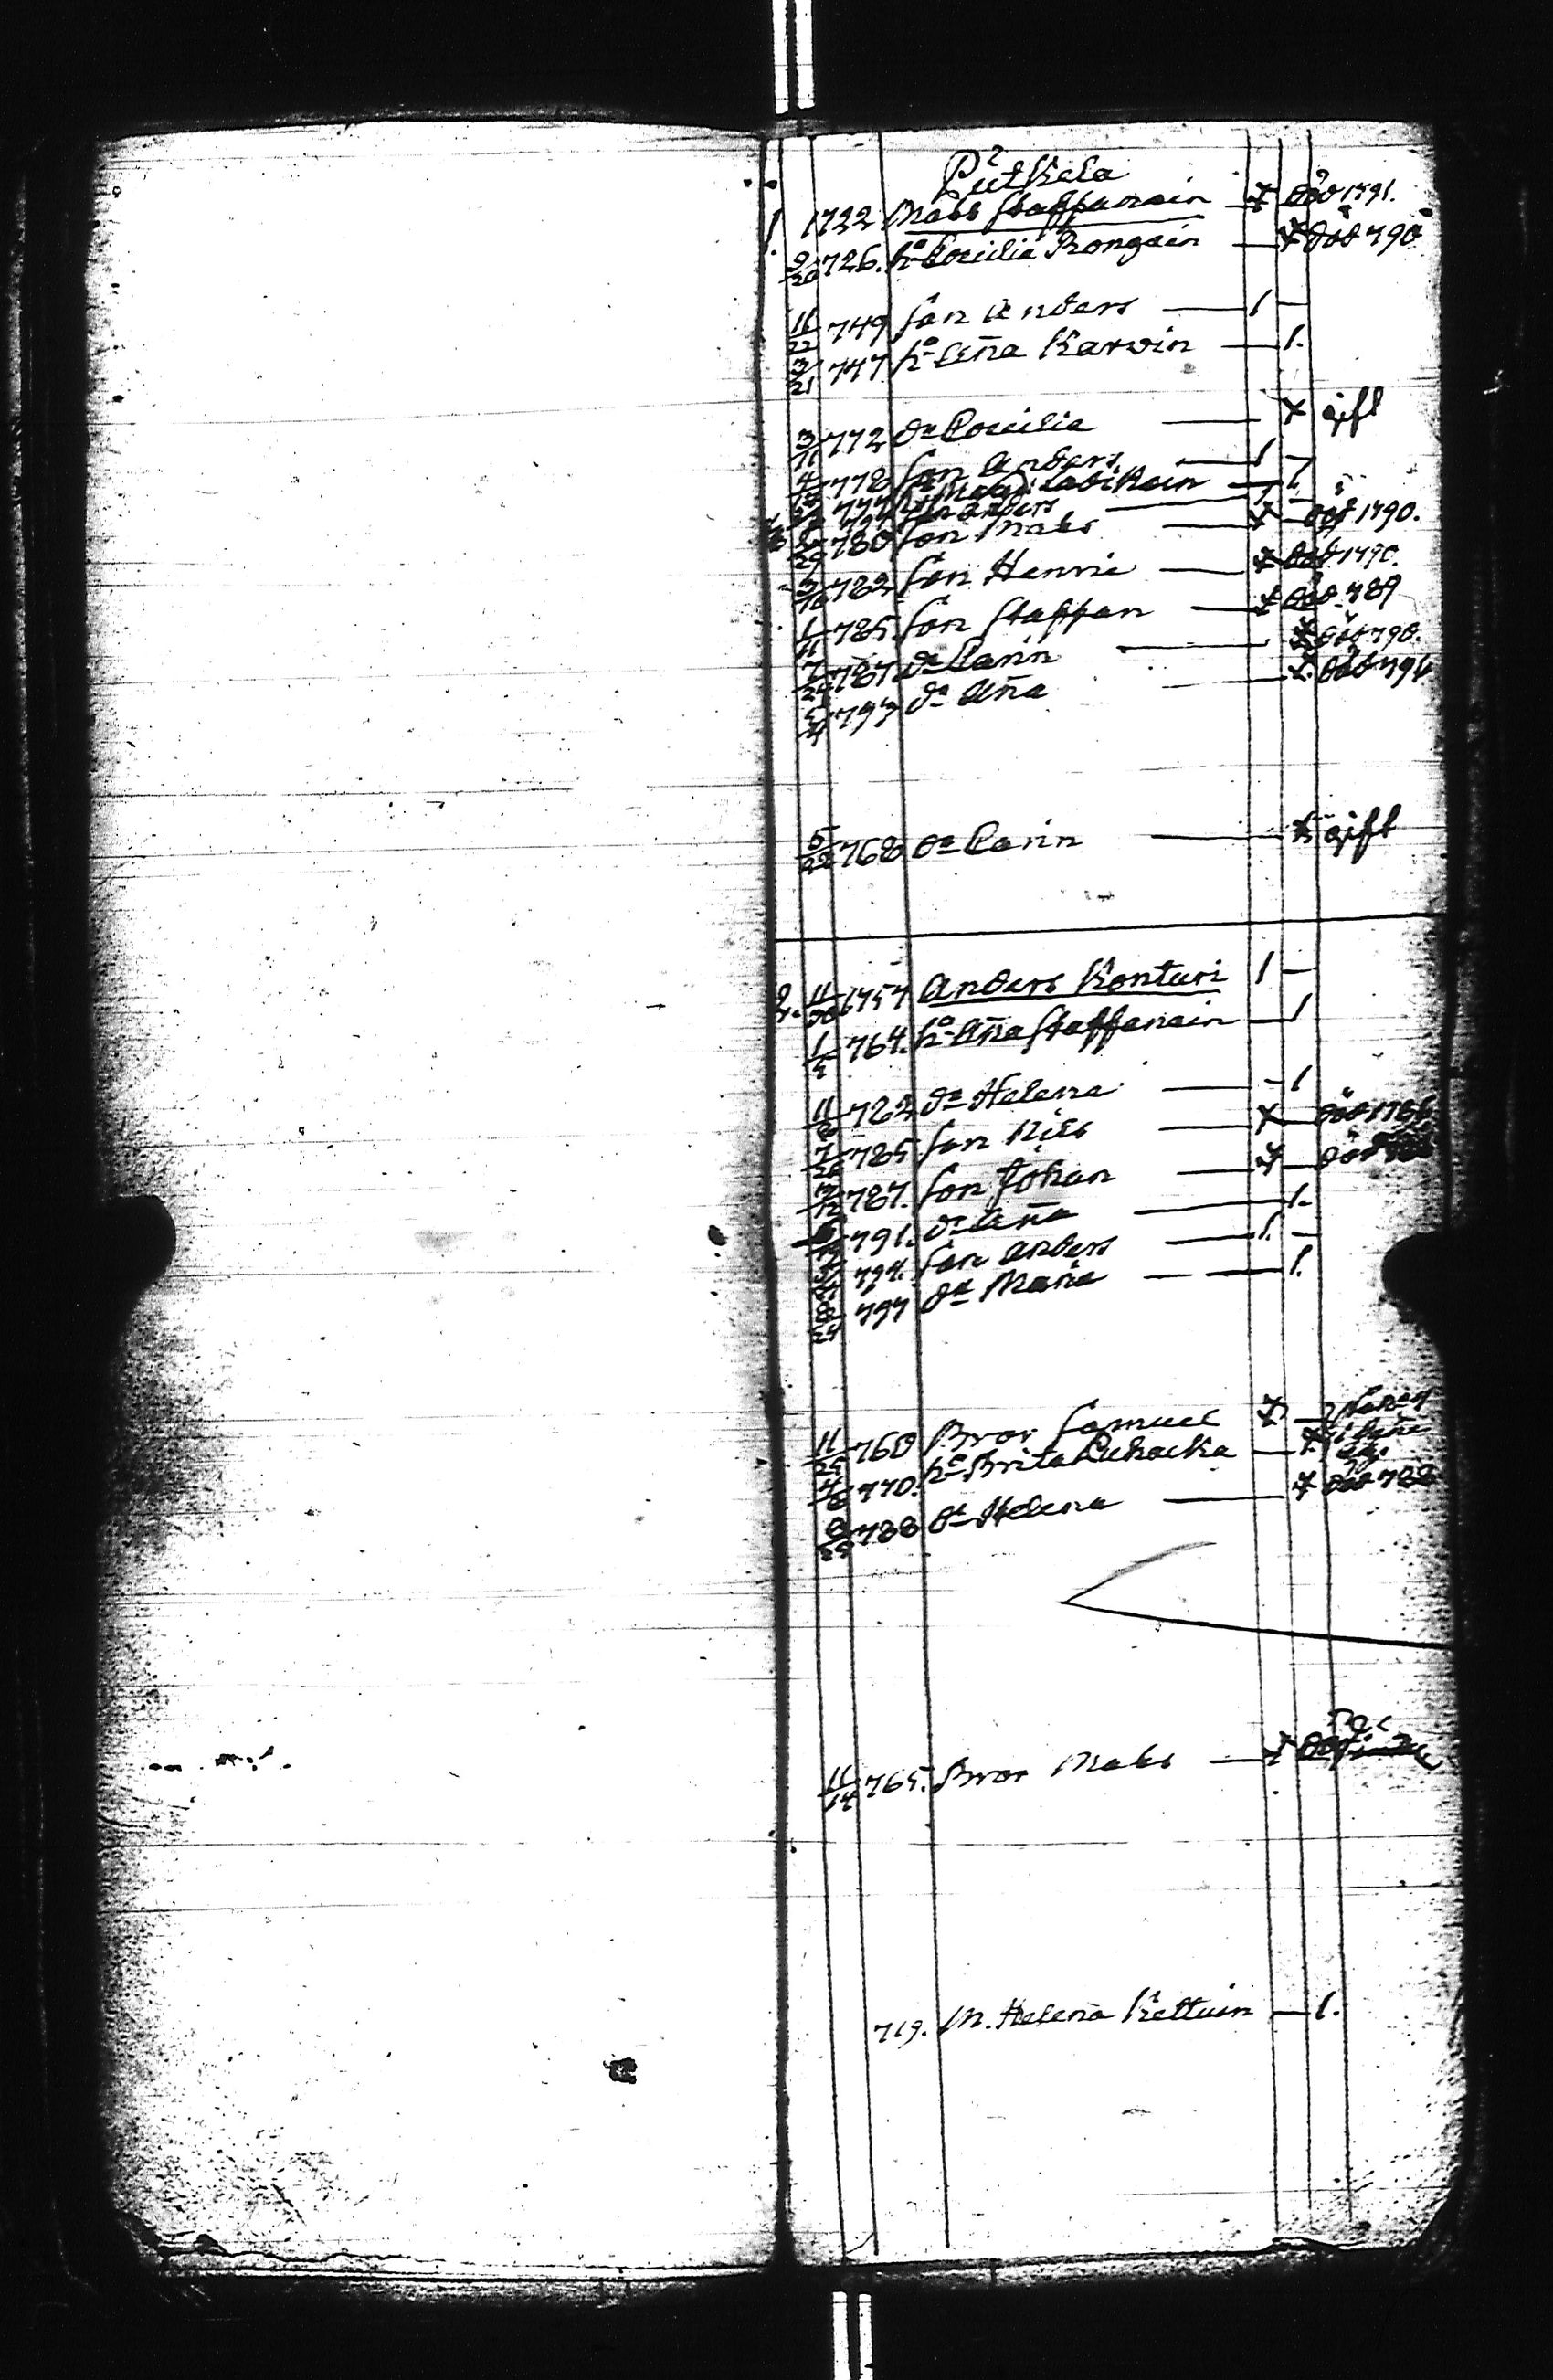 Putkela
1 1722 Mats Staffanain död 1791.
726. h: Cecilia Rongain död 790
11/22 749 Son Anders 1 —
3/21 747 h: Aña Karvin — 1.
3/11 772 dr Cecilia gift
778 Son Anders 1 —
777 Labikain — 1.
Son Anders 1 —
780 Son Mats död 1790.
3/16 782 Son Hanri död 1790.
1/11 785. Son Staffan död 789
787 dr Carin död 790.
793 dr Aña död 794
5/22 768 dr Carin gift
2. 11/30 1757 Anders Konturi 1 —
1/5 764. h: Aña Staffanain — 1
782 dr Helena — 1
785 Son Nils död 1786
787. Son Johan död
791. dr Aña — 1.
794. Son Anders 1. —
797 dr Maria — 1.
11/25 760 Bror Samuel
4/8 770. h: Brita Puhacka
788 dr Helena död 788
11/14 765. Bror Mats
719. M. Helena Kettuin — 1.